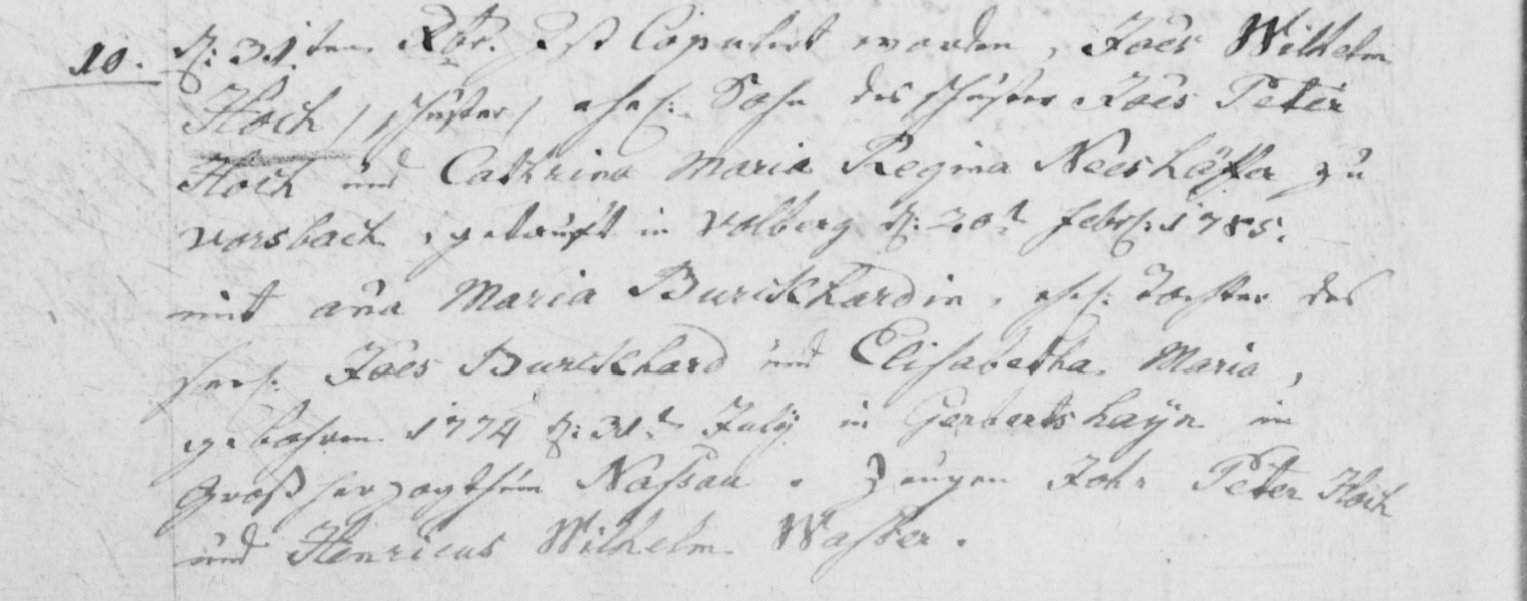 10. d: 31.ten Xbr. Ist Copulirt worden, Joës Wilhelm
Hoch / schuster / ehel: Sohn des schuster Joës Peter
Hoch und Cathrina Maria Regina Neeshäffer zu
vorsbach, getauft in Volberg d: 20t febr: 1785.
mit aña Maria Burckhardin, ehel: Tochter des
Joës Burckhard und Elisabetha Maria,
gebohren 1774 d: 31t July in Gerhartshaÿn im
Großherzogthum Naßau. Zeugen Johs Peter Hoch
und Henricus Wilhelm Waßer.